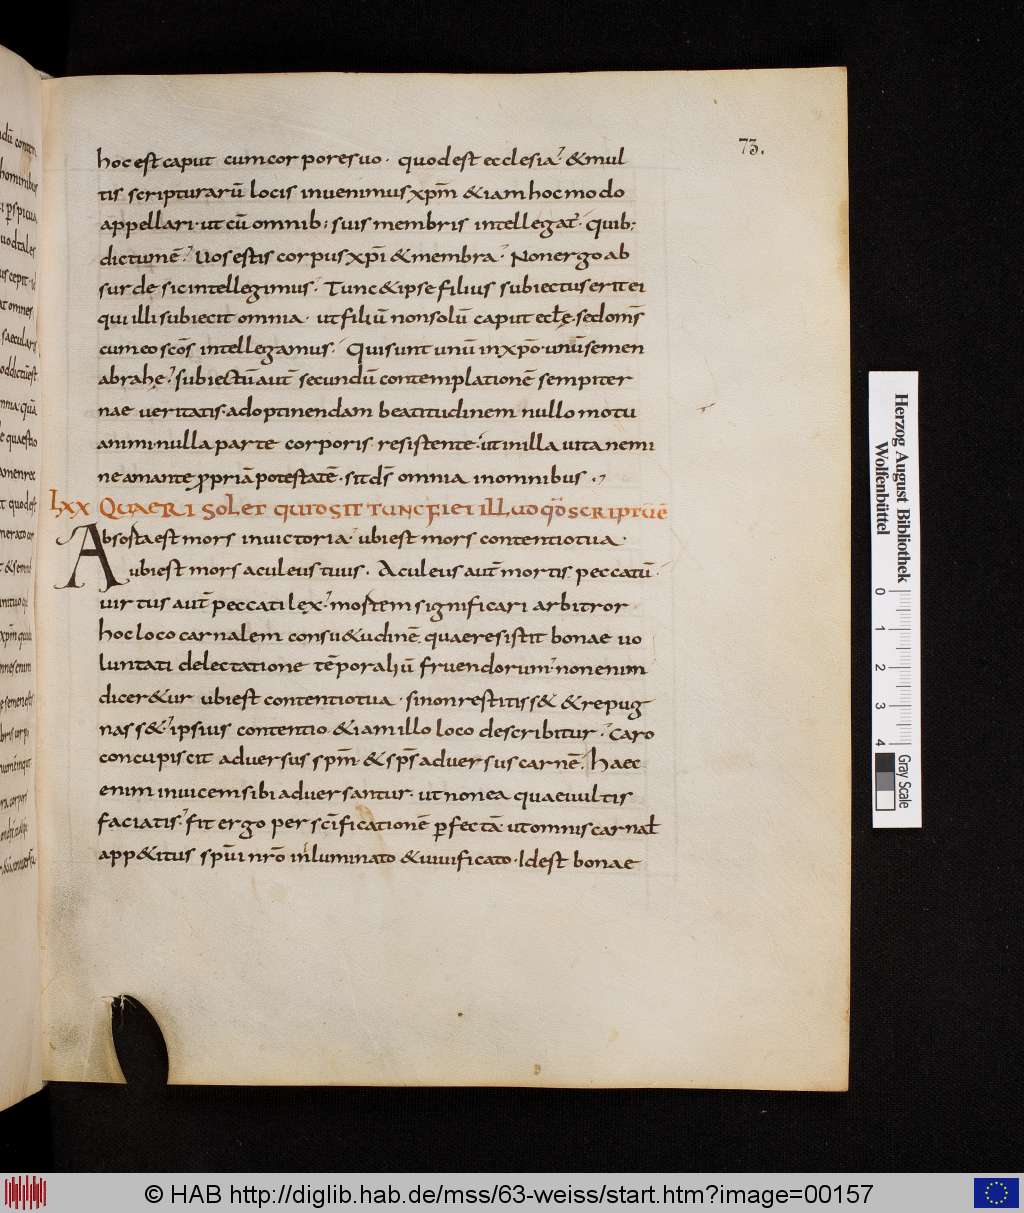 73.
hoc est caput cum corpore suo · quod est ecclesia · & mul
tis scripturarū locis inuenimus xpm̄ & iam hoc modo
appellari · ut cū omnib; suis membris intellegat̄ · Quib;
dictum ē · Uos estis corpus xpī & membra · Non ergo ab
surde sic intellegimus · Tunc & ipse filius subiectus erit ei
qui illi subiecit omnia · ut filiū non solū caput eccłę · sed om̄s
cum eo sc̄os intellegamus · Qui sunt unū in xp̄o · unū semen
abrahę · subiectū aut̄ secundū contemplationē sempiter
nae ueritatis · ad optinendam beatitudinem nullo motu
animi · nulla parte corporis resistente · ut in illa uita nemi
ne amante propriā potestatē · sit d̄s omnia in omnibus ·
LXX QUAERI SOLET QUID SIT TUNC FIET ILLUD QD̄ SCRIPTŪ Ē
Absorta est mors in uictoria · ubi est mors contentio tua ·
ubi est mors aculeus tuus · Aculeus aut̄ mortis peccatū ·
uirtus aut̄ peccati lex · mortem significari arbitror
hoc loco carnalem consu&udinē quae resistit bonae uo
luntati delectatione tēporaliū fruendorum · non enim
dicer&ur ubi est contentio tua · si non restitiss& & repug
nass& · ipsius contentio & iam illo loco describitur · Caro
concupiscit aduersus spm̄ · & sp̄s aduersus carnē · Haec
enim inuicem sibi aduersantur · ut non ea quae uultis
faciatis · fit ergo per sc̄ificationē perfectā ut omnis carnał
app&itus spūi nr̄o inluminato & uiuificato · Id est bonae
Herzog August Bibliothek
Wolfenbüttel
0 1 2 3 4
Gray Scale
© HAB http://diglib.hab.de/mss/63-weiss/start.htm?image=00157